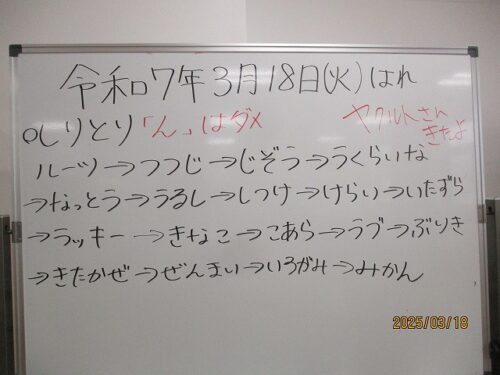 令和7年3月18日(火)はれ
○しりとり「ん」はダメ
ヤクルトさん
きたよ
ルーツ→つつじ→じぞう→うくらいな
→なっとう→うるし→しつけ→けらい→いたずら
→ラッキー→きなこ→こあら→ラブ→ぶりき
→きたかぜ→ぜんまい→いろがみ→みかん
2025/03/18